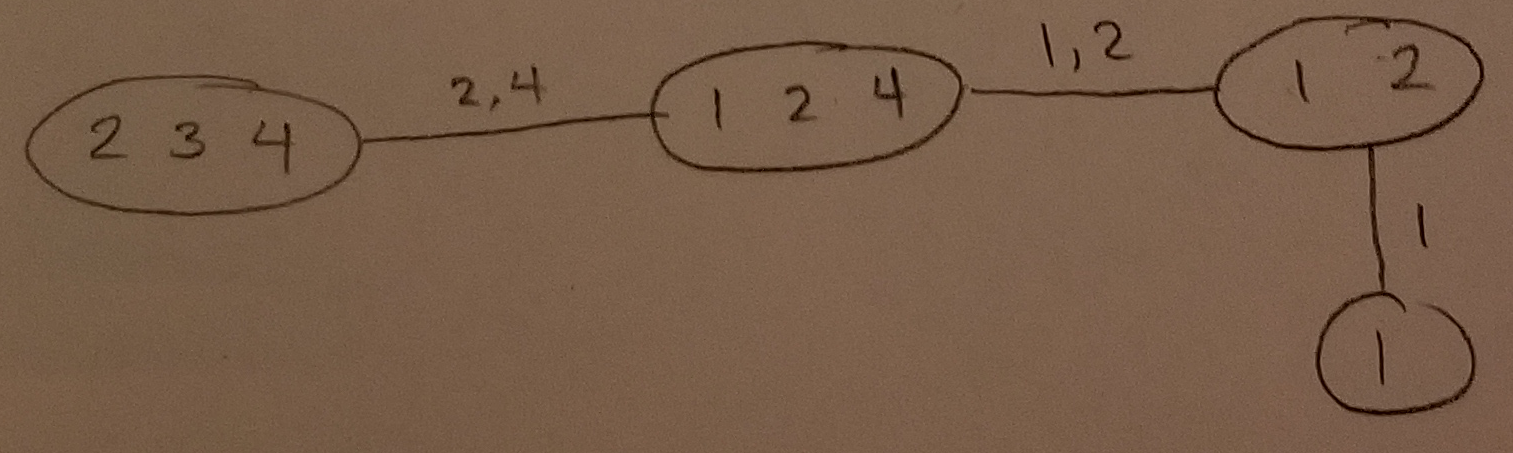 2 3 4
2,4
1 2 4
1,2
1 2
1
1